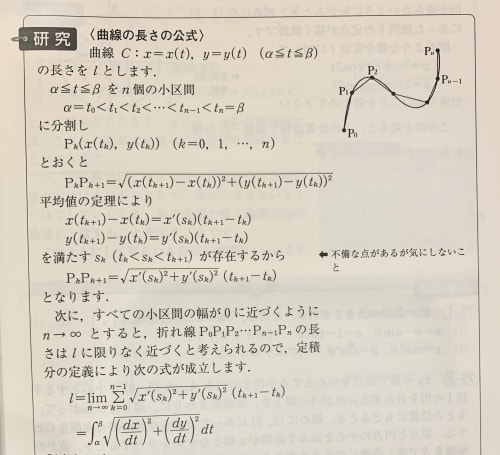 研究 〈曲線の長さの公式〉
曲線 C:x=x(t), y=y(t) (α≦t≦β)
の長さを l とします.
α≦t≦β を n 個の小区間
α=t₀<t₁<t₂<…<tₙ₋₁<tₙ=β
に分割し
Pₖ(x(tₖ), y(tₖ)) (k=0, 1, …, n)
とおくと
PₖPₖ₊₁=√((x(tₖ₊₁)−x(tₖ))²+(y(tₖ₊₁)−y(tₖ))²)
平均値の定理により
x(tₖ₊₁)−x(tₖ)=x′(sₖ)(tₖ₊₁−tₖ)
y(tₖ₊₁)−y(tₖ)=y′(sₖ)(tₖ₊₁−tₖ)
を満たす sₖ (tₖ<sₖ<tₖ₊₁) が存在するから
← 不備な点があるが気にしないこ
と
PₖPₖ₊₁=√(x′(sₖ)²+y′(sₖ)²) (tₖ₊₁−tₖ)
となります.
次に, すべての小区間の幅が 0 に近づくように
n→∞ とすると, 折れ線 P₀P₁P₂…Pₙ₋₁Pₙ の長
さは l に限りなく近づくと考えられるので, 定積
分の定義により次の式が成立します.
l=lim n→∞ Σ k=0 n−1 √(x′(sₖ)²+y′(sₖ)²) (tₖ₊₁−tₖ)
=∫α β √((dx/dt)²+(dy/dt)²) dt
P₀
P₁
P₂
Pₙ₋₁
Pₙ